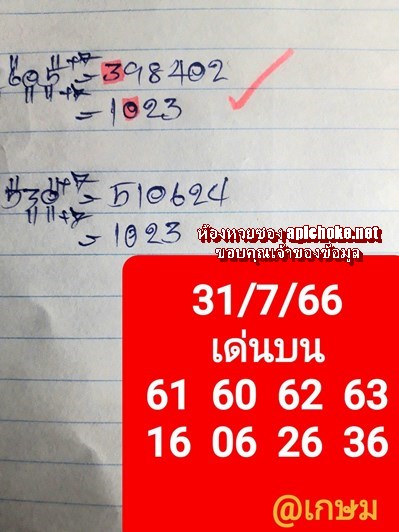 605+7 = 398402
= 1023
530+7 = 510624
= 1023
ห้องหวยซอง apichoke.net
ขอบคุณเจ้าของข้อมูล
31/7/66
เด่นบน
61 60 62 63
16 06 26 36
@เกษม